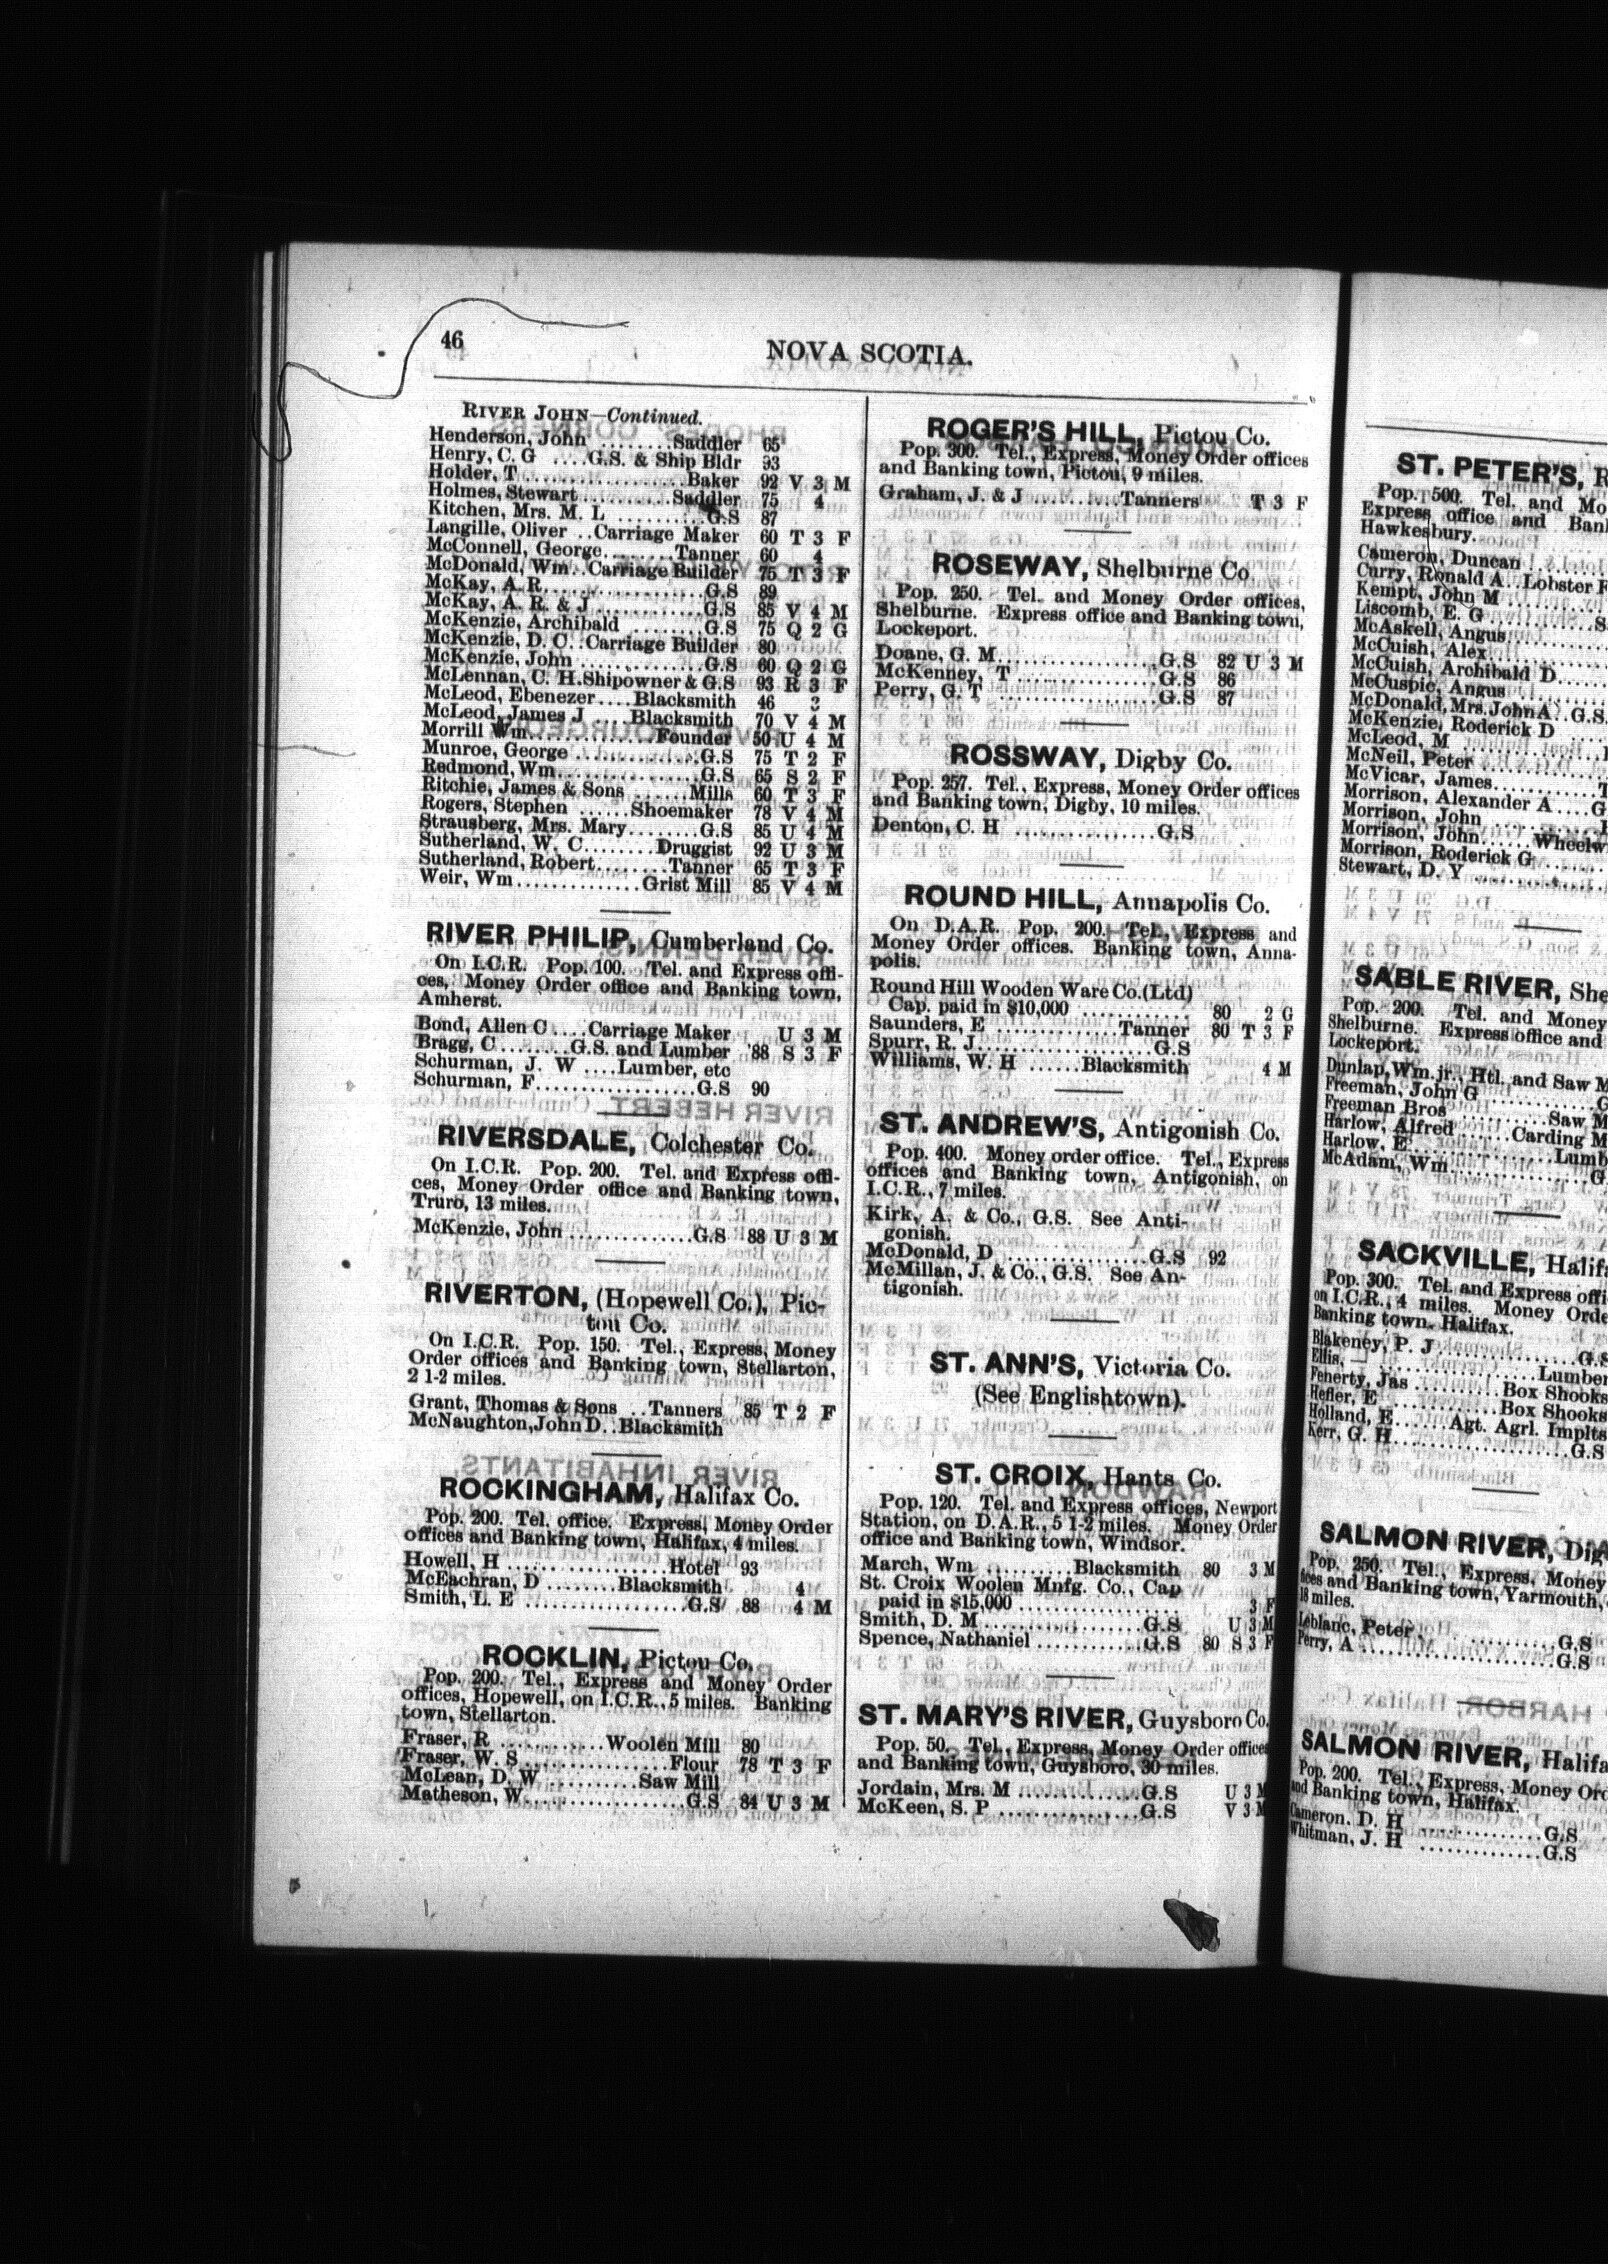 46
NOVA SCOTIA.
RIVER JOHN—Continued.
Henderson, John ........Saddler 65
Henry, C. G ....G.S. & Ship Bldr 93
Holder, T..................Baker 92 V 3 M
Holmes, Stewart..........Saddler 75 4
Kitchen, Mrs. M. L .........G.S 87
Langille, Oliver ..Carriage Maker 60 T 3 F
McConnell, George........Tanner 60 4
McDonald, Wm..Carriage Builder 75 T 3 F
McKay, A. R................G.S 89
McKay, A. R. & J............G.S 85 V 4 M
McKenzie, Archibald ........G.S 75 Q 2 G
McKenzie, D. C..Carriage Builder 80
McKenzie, John .............G.S 60 Q 2 G
McLennan, C. H.Shipowner & G.S 93 R 3 F
McLeod, Ebenezer....Blacksmith 46 3
McLeod, James J ....Blacksmith 70 V 4 M
Morrill Wm..............Founder 50 U 4 M
Munroe, George .............G.S 75 T 2 F
Redmond, Wm...............G.S 65 S 2 F
Ritchie, James & Sons ......Mills 60 T 3 F
Rogers, Stephen .....Shoemaker 78 V 4 M
Strausberg, Mrs. Mary.......G.S 85 U 4 M
Sutherland, W. C........Druggist 92 U 3 M
Sutherland, Robert........Tanner 65 T 3 F
Weir, Wm.............Grist Mill 85 V 4 M
RIVER PHILIP, Cumberland Co.
On I.C.R. Pop. 100. Tel. and Express offi-
ces, Money Order office and Banking town,
Amherst.
Bond, Allen C ....Carriage Maker U 3 M
Bragg, C........G.S. and Lumber 88 S 3 F
Schurman, J. W ....Lumber, etc
Schurman, F.................G.S 90
RIVERSDALE, Colchester Co.
On I.C.R. Pop. 200. Tel. and Express offi-
ces, Money Order office and Banking town,
Truro, 13 miles.
McKenzie, John .............G.S 88 U 3 M
RIVERTON, (Hopewell Co.), Pic-
tou Co.
On I.C.R. Pop. 150. Tel., Express, Money
Order offices and Banking town, Stellarton,
2 1-2 miles.
Grant, Thomas & Sons ..Tanners 85 T 2 F
McNaughton, John D..Blacksmith
ROCKINGHAM, Halifax Co.
Pop. 200. Tel. office. Express, Money Order
offices and Banking town, Halifax, 4 miles.
Howell, H .................Hotel 93
McEachran, D ........Blacksmith 4
Smith, L. E .................G.S 88 4 M
ROCKLIN, Pictou Co.
Pop. 200. Tel., Express and Money Order
offices, Hopewell, on I.C.R., 5 miles. Banking
town, Stellarton.
Fraser, R ...........Woolen Mill 80
Fraser, W. S...............Flour 78 T 3 F
McLean, D. W..........Saw Mill
Matheson, W.................G.S 84 U 3 M
ROGER'S HILL, Pictou Co.
Pop. 300. Tel., Express, Money Order offices
and Banking town, Pictou, 9 miles.
Graham, J. & J ..........Tanners T 3 F
ROSEWAY, Shelburne Co.
Pop. 250. Tel. and Money Order offices,
Shelburne. Express office and Banking town,
Lockeport.
Doane, G. M ................G.S 82 U 3 M
McKenney, T ................G.S 86
Perry, G. T .................G.S 87
ROSSWAY, Digby Co.
Pop. 257. Tel., Express, Money Order offices
and Banking town, Digby, 10 miles.
Denton, C. H ...............G.S
ROUND HILL, Annapolis Co.
On D.A.R. Pop. 200. Tel., Express and
Money Order offices. Banking town, Anna-
polis.
Round Hill Wooden Ware Co.(Ltd)
Cap. paid in $10,000 ............ 80 2 G
Saunders, E .............Tanner 80 T 3 F
Spurr, R. J..................G.S
Williams, W. H ......Blacksmith 4 M
ST. ANDREW'S, Antigonish Co.
Pop. 400. Money order office. Tel., Express
offices and Banking town, Antigonish, on
I.C.R., 7 miles.
Kirk, A. & Co., G.S. See Anti-
gonish.
McDonald, D ................G.S 92
McMillan, J. & Co., G.S. See An-
tigonish.
ST. ANN'S, Victoria Co.
(See Englishtown).
ST. CROIX, Hants Co.
Pop. 120. Tel. and Express offices, Newport
Station, on D.A.R., 5 1-2 miles. Money Order
office and Banking town, Windsor.
March, Wm ..........Blacksmith 80 3 M
St. Croix Woolen Mnfg. Co., Cap
paid in $15,000 .................. 3 F
Smith, D. M..................G.S U 3 M
Spence, Nathaniel ............G.S 80 S 3 F
ST. MARY'S RIVER, Guysboro Co.
Pop. 50. Tel., Express, Money Order offices
and Banking town, Guysboro, 30 miles.
Jordain, Mrs. M ..............G.S U 3 M
McKeen, S. P ................G.S V 3 M
ST. PETER'S, R
Pop. 500. Tel. and Mo
Express office and Ban
Hawkesbury.
Cameron, Duncan
Curry, Ronald A..Lobster F
Kempt, John M
Liscomb, E. G
McAskell, Angus
McCuish, Alex
McCuish, Archibald D
McCuspic, Angus
McDonald, Mrs. John A..G.S.
McKenzie, Roderick D
McLeod, M
McNeil, Peter
McVicar, James
Morrison, Alexander A ....G
Morrison, John
Morrison, John......Wheelw
Morrison, Roderick G
Stewart, D. Y
SABLE RIVER, She
Pop. 200. Tel. and Money
Shelburne. Express office and
Lockeport.
Dunlap, Wm. jr., Htl. and Saw M
Freeman, John G ............G
Freeman Bros ..........Saw M
Harlow, Alfred ......Carding M
Harlow, E................Lumb
McAdam, Wm................G.
SACKVILLE, Halifa
Pop. 300. Tel. and Express offi
on I.C.R., 4 miles. Money Orde
Banking town, Halifax.
Blakeney, P. J ..............G.S
Ellis, — ................Lumber
Fenerty, Jas ..........Box Shooks
Hefler, E .............Box Shooks
Holland, E......Agt. Agrl. Implts
Kerr, G. H..................G.S
SALMON RIVER, Dig
Pop. 250. Tel., Express, Money
fices and Banking town, Yarmouth,
18 miles.
Leblanc, Peter ..............G.S
Perry, A ....................G.S
SALMON RIVER, Halifa
Pop. 200. Tel., Express, Money Ord
and Banking town, Halifax.
Cameron. D. H ..............G.S
Whitman, J. H ..............G.S